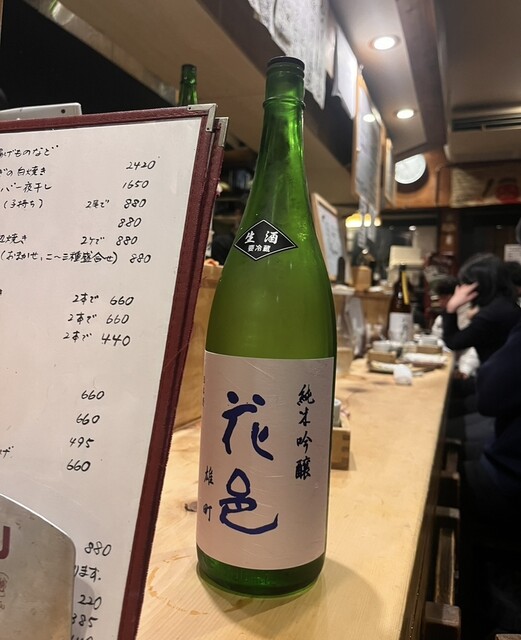 揚げものなど
の白焼き 2420
バー一夜干し 1650
(子持ち) 2尾で 880
880
焼き 2ケで 880
(おまかせ、二〜三種盛合せ) 880
2本で 660
2本で 660
2本で 440
660
660
495
げ 660
880
ります。
220
385
生酒
要冷蔵
純米吟醸
花邑
雄町